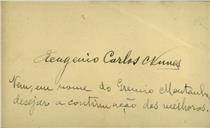 Eugenio Carlos Nunes
Vem, em nome do Gremio Montanha
desejar a continuação das melhoras.